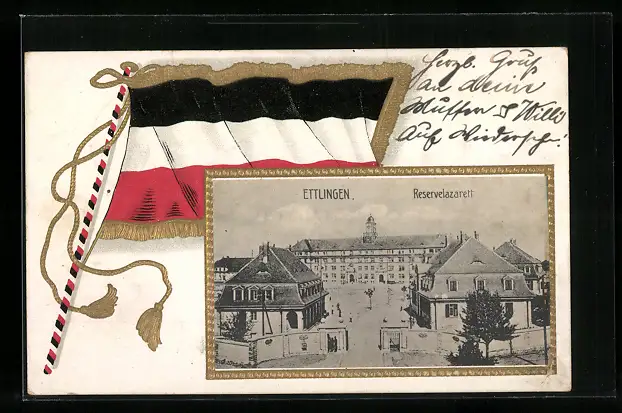 Herzl. Gruß
an deine
Mutter & Willi
Auf Wiedersehn!
ETTLINGEN, Reservelazarett